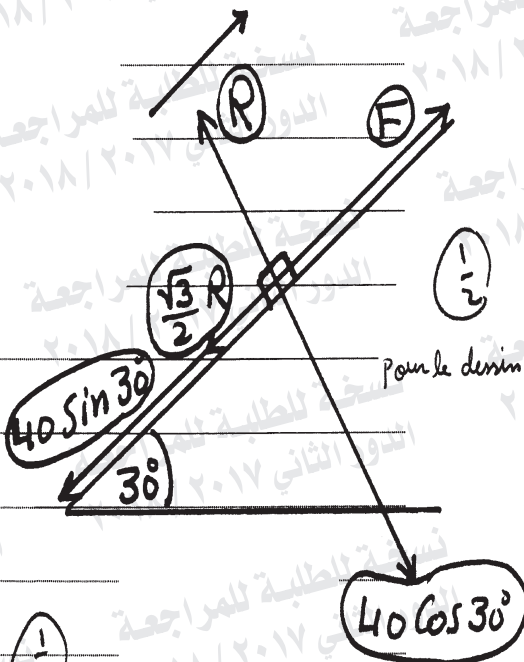 R
F
√3/2 R
1/2
pour le dessin
40 Sin 30°
30°
40 Cos 30°
1
نسخة للطلبة للمراجعة
الدور الثاني ٢٠١٧ / ٢٠١٨